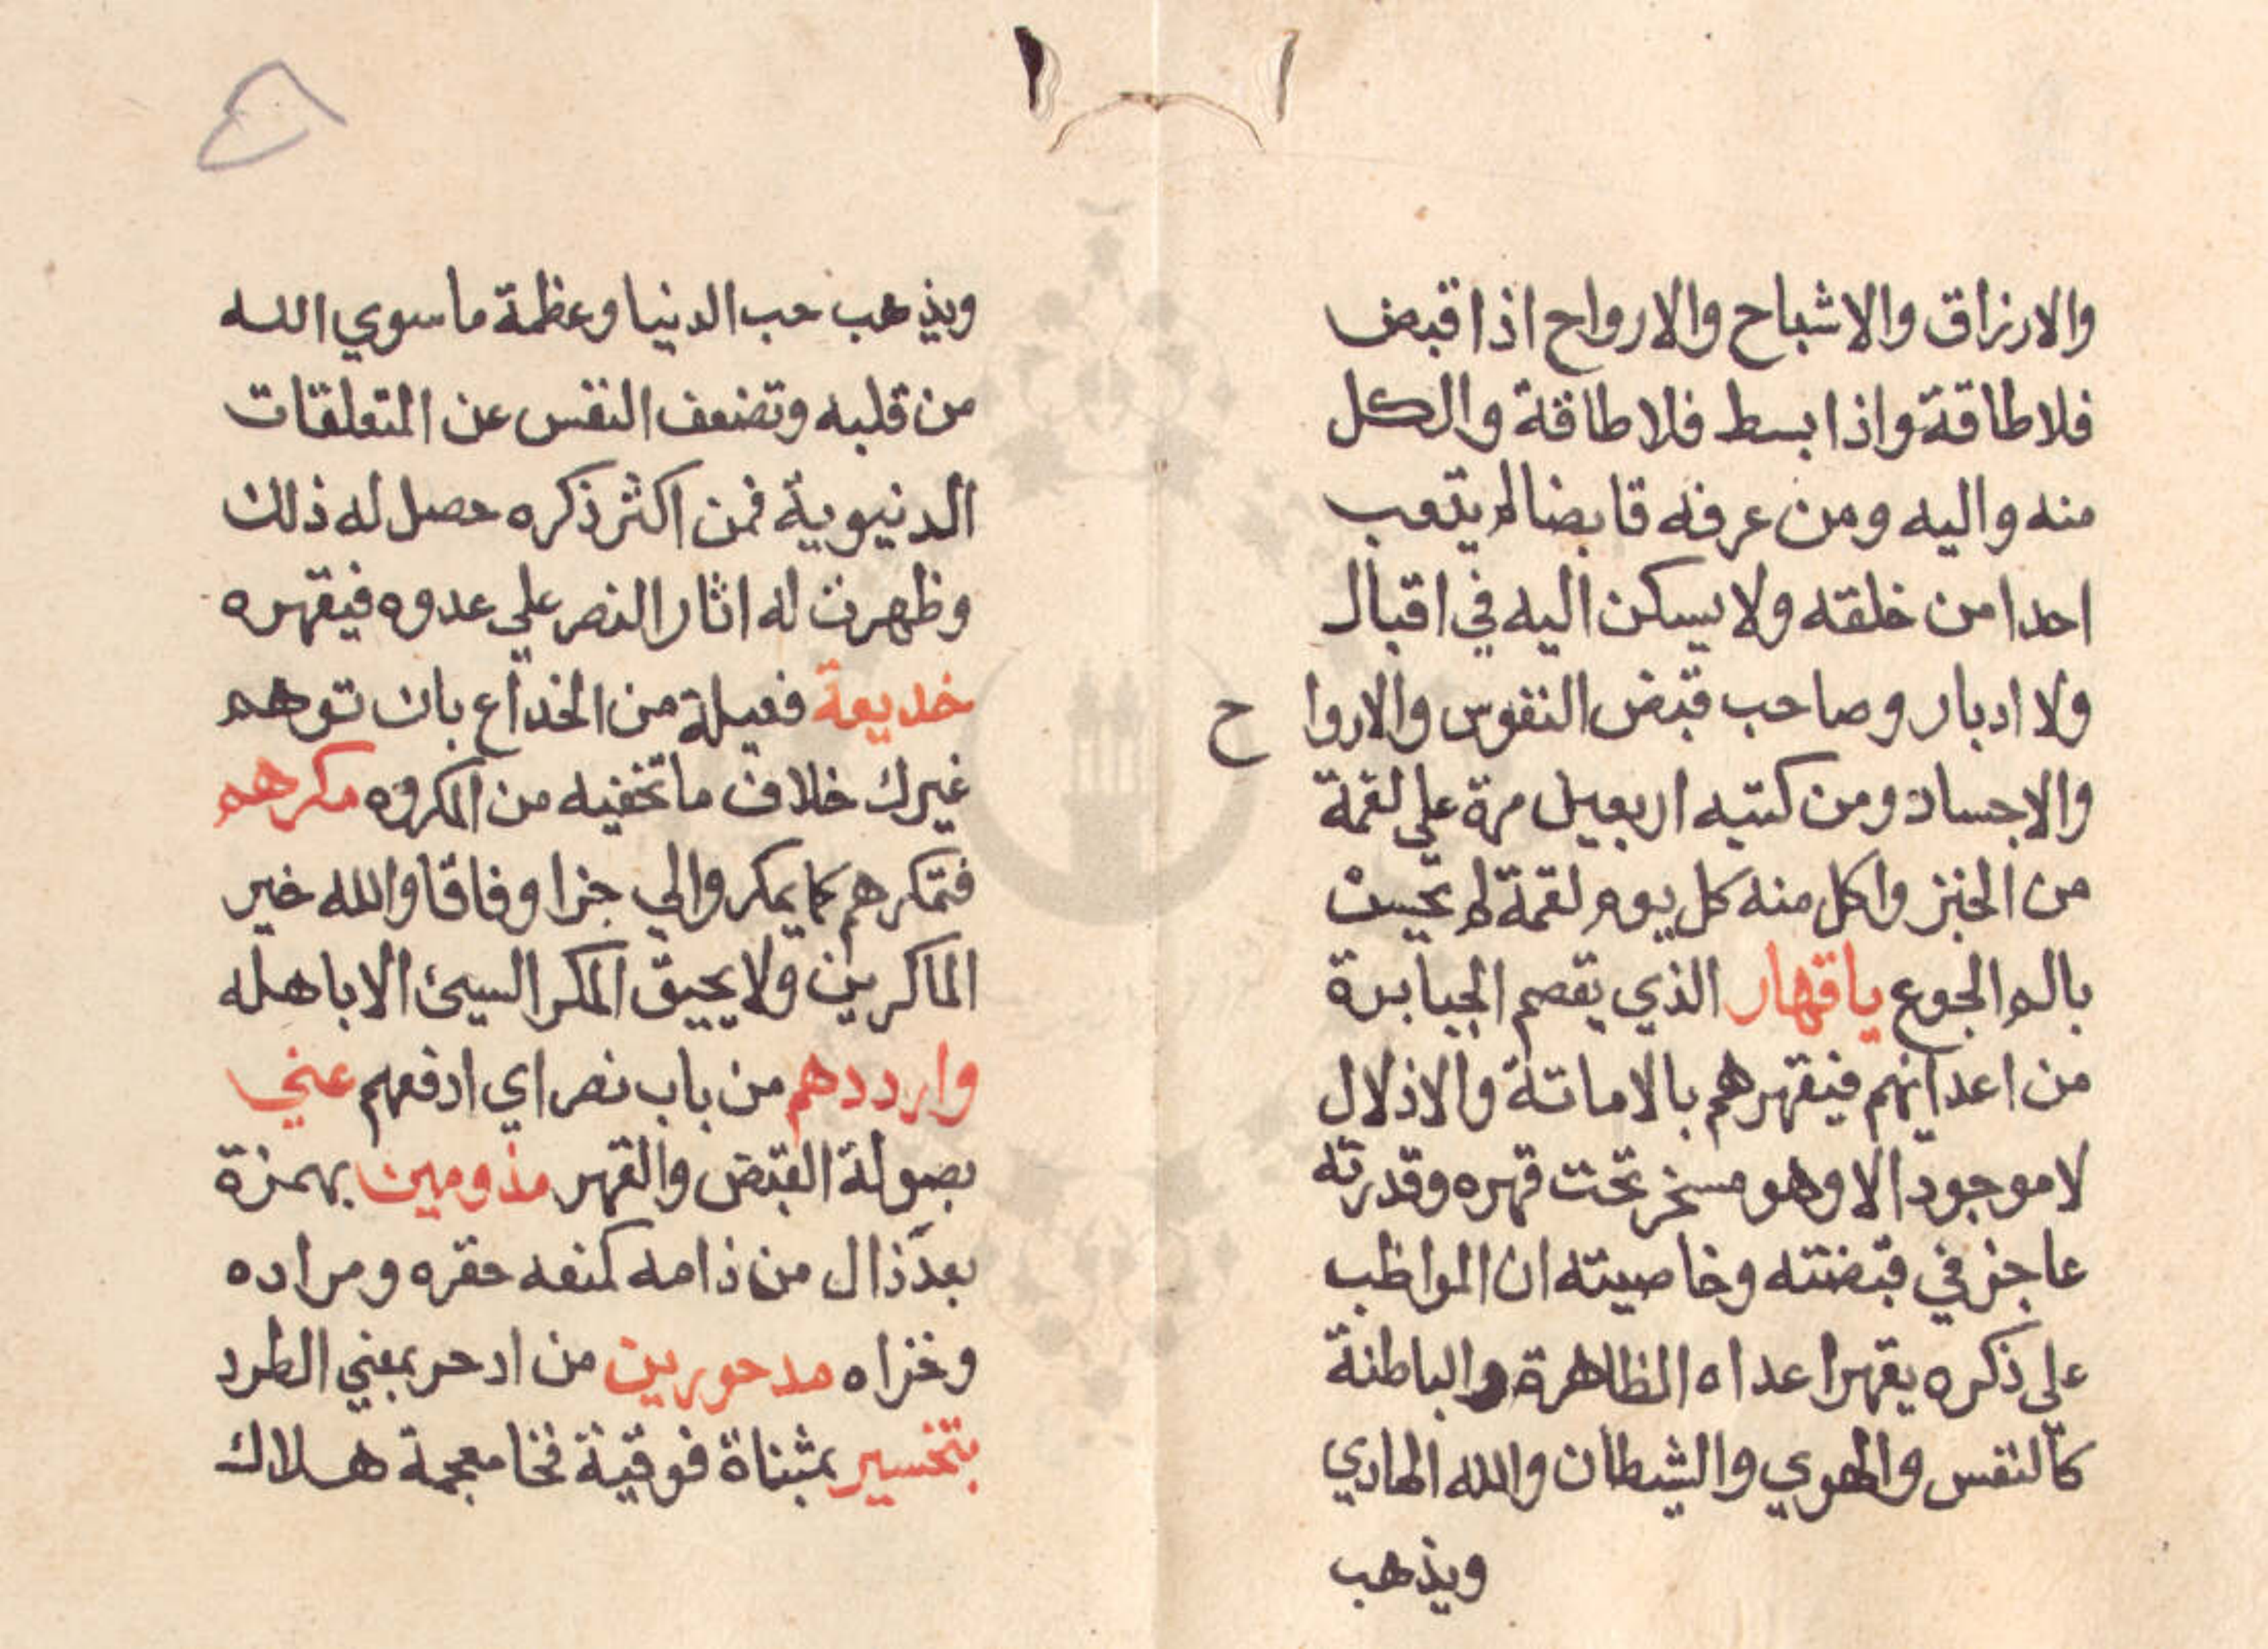 والارزاق والاشباح والارواح اذا قبض
فلا طاقة واذا بسط فلا طاقة والكل
منه واليه ومن عرفه قابضا لم يتعب
احدا من خلقه ولا يسكن اليه في اقبال
ولا ادبار وصاحب قبض النفوس والاروا ح
والاجساد ومن كتبه اربعين مرة علي لقمة
من الخبز واكل منه كل يوم لقمة لم يحس
بالم الجوع ياقهار الذي يقصم الجبابرة
من اعدائهم فيقهرهم بالاماتة والاذلال
لا موجود الا وهو مسخر تحت قهره وقدرته
عاجز في قبضته وخاصيته ان المواظب
علي ذكره يقهر اعداه الظاهرة والباطنة
كالنفس والهوي والشيطان والله الهادي
ويذهب
ويذهب حب الدنيا وعظمة ما سوي الله
من قلبه وتضعف النفس عن المتعلقات
الدنيوية فمن اكثر ذكره حصل له ذلك
وظهرت له اثار النصر علي عدوه فيقهره
خديعة فعيلة من الخداع بان توهم
غيرك خلاف ما تخفيه من المكروه مكرهم
فتمكرهم كما يمكروا لي جزا وفاقا والله خير
الماكرين ولا يحيق المكر السيئ الا باهله
وارددهم من باب نصر اي ادفعهم عني
بصولة القبض والقهر مذومين بهمزة
بعد ذال من ذامه كمنعه حقره ومراده
وخزاه مدحورين من ادحر بمعني الطرد
بتخسير بمثناة فوقية فخا معجمة هلاك